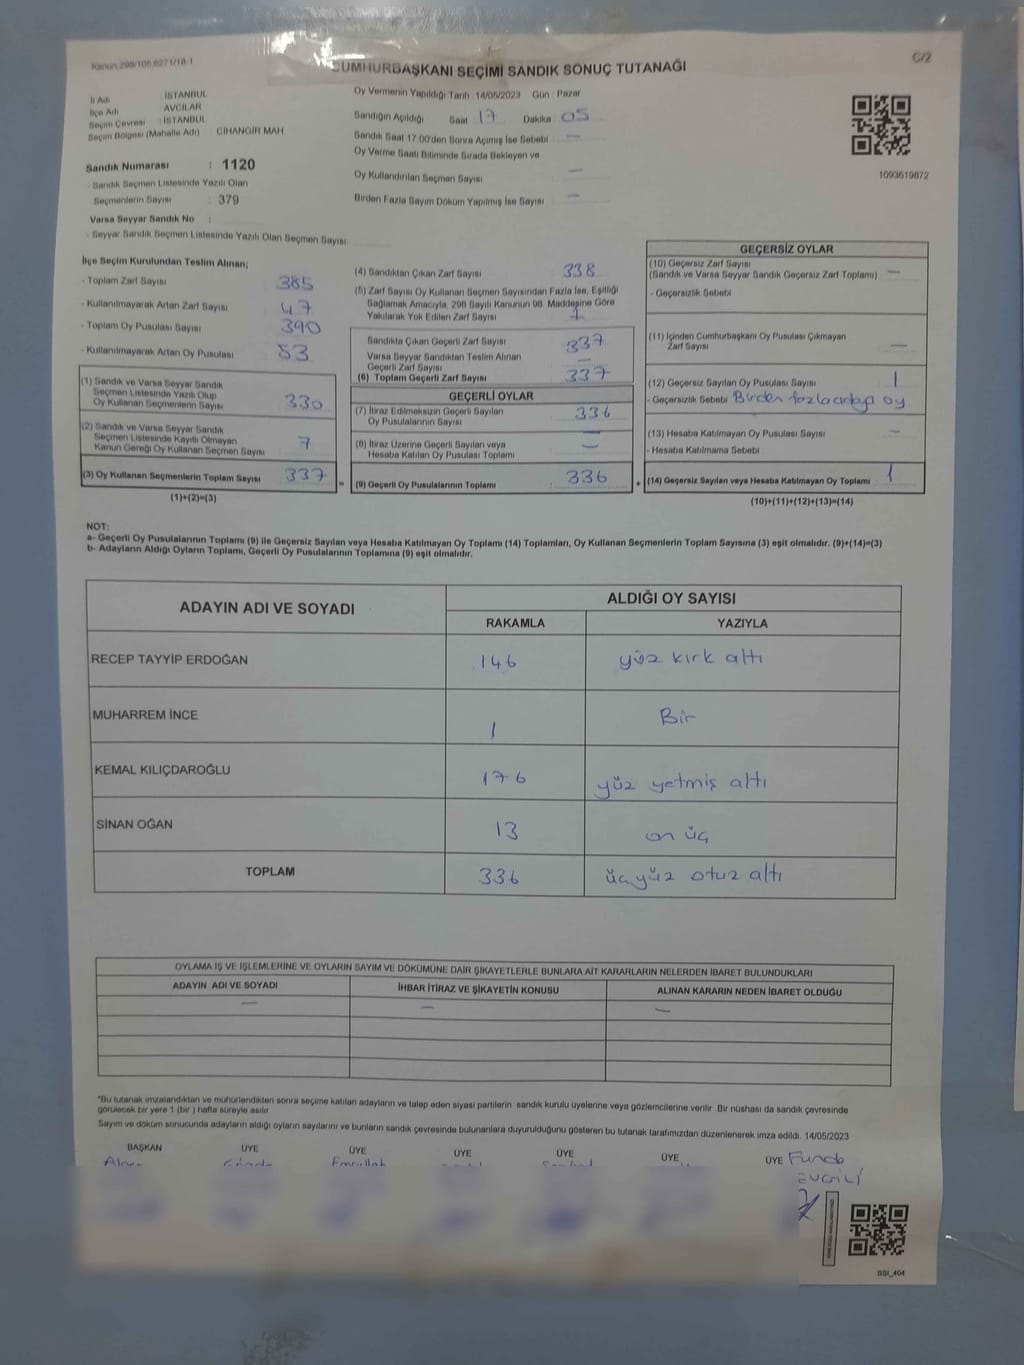 Kanun:298/105,6271/18-1
C/2
CUMHURBAŞKANI SEÇİMİ SANDIK SONUÇ TUTANAĞI
İl Adı : İSTANBUL
İlçe Adı AVCILAR
Seçim Çevresi : İSTANBUL
Seçim Bölgesi (Mahalle Adı) CİHANGİR MAH
Sandık Numarası : 1120
- Sandık Seçmen Listesinde Yazılı Olan
Seçmenlerin Sayısı : 379
Varsa Seyyar Sandık No :
- Seyyar Sandık Seçmen Listesinde Yazılı Olan Seçmen Sayısı
Oy Vermenin Yapıldığı Tarih : 14/05/2023 Gün : Pazar
Sandığın Açıldığı Saat 17 Dakika 05
Sandık Saat 17:00'den Sonra Açımış İse Sebebi —
Oy Verme Saati Bitiminde Sırada Bekleyen ve
Oy Kullandırılan Seçmen Sayısı —
Birden Fazla Sayım Döküm Yapılmış İse Sayısı —
1093619872
İlçe Seçim Kurulundan Teslim Alınan;
- Toplam Zarf Sayısı 385
- Kullanılmayarak Artan Zarf Sayısı 47
- Toplam Oy Pusulası Sayısı 390
- Kullanılmayarak Artan Oy Pusulası 53
(1) Sandık ve Varsa Seyyar Sandık
Seçmen Listesinde Yazılı Olup
Oy Kullanan Seçmenlerin Sayısı 330
(2) Sandık ve Varsa Seyyar Sandık
Seçmen Listesinde Kayıtlı Olmayan
Kanun Gereği Oy Kullanan Seçmen Sayısı 7
(3) Oy Kullanan Seçmenlerin Toplam Sayısı 337
(1)+(2)=(3)
(4) Sandıktan Çıkan Zarf Sayısı 338
(5) Zarf Sayısı Oy Kullanan Seçmen Sayısından Fazla İse, Eşitliği
Sağlamak Amacıyla, 298 Sayılı Kanunun 98. Maddesine Göre
Yakılarak Yok Edilen Zarf Sayısı 1
Sandıkta Çıkan Geçerli Zarf Sayısı 337
Varsa Seyyar Sandıktan Teslim Alınan
Geçerli Zarf Sayısı —
(6) Toplam Geçerli Zarf Sayısı 337
GEÇERLİ OYLAR
(7) İtiraz Edilmeksizin Geçerli Sayılan
Oy Pusulalarının Sayısı 336
(8) İtiraz Üzerine Geçerli Sayılan veya
Hesaba Katılan Oy Pusulası Toplamı —
= (9) Geçerli Oy Pusulalarının Toplamı 336 +
GEÇERSİZ OYLAR
(10) Geçersiz Zarf Sayısı
(Sandık ve Varsa Seyyar Sandık Geçersiz Zarf Toplamı) —
- Geçersizlik Sebebi
(11) İçinden Cumhurbaşkanı Oy Pusulası Çıkmayan
Zarf Sayısı —
(12) Geçersiz Sayılan Oy Pusulası Sayısı 1
- Geçersizlik Sebebi Birden fazla adaya oy
(13) Hesaba Katılmayan Oy Pusulası Sayısı —
- Hesaba Katılmama Sebebi
(14) Geçersiz Sayılan veya Hesaba Katılmayan Oy Toplamı 1
(10)+(11)+(12)+(13)=(14)
NOT:
a- Geçerli Oy Pusulalarının Toplamı (9) ile Geçersiz Sayılan veya Hesaba Katılmayan Oy Toplamı (14) Toplamları, Oy Kullanan Seçmenlerin Toplam Sayısına (3) eşit olmalıdır. (9)+(14)=(3)
b- Adayların Aldığı Oyların Toplamı, Geçerli Oy Pusulalarının Toplamına (9) eşit olmalıdır.
ADAYIN ADI VE SOYADI ALDIĞI OY SAYISI
RAKAMLA YAZIYLA
RECEP TAYYİP ERDOĞAN 146 yüz kırk altı
MUHARREM İNCE 1 Bir
KEMAL KILIÇDAROĞLU 176 yüz yetmiş altı
SİNAN OĞAN 13 on üç
TOPLAM 336 üçyüz otuz altı
OYLAMA İŞ VE İŞLEMLERİNE VE OYLARIN SAYIM VE DÖKÜMÜNE DAİR ŞİKAYETLERLE BUNLARA AİT KARARLARIN NELERDEN İBARET BULUNDUKLARI
ADAYIN ADI VE SOYADI İHBAR İTİRAZ VE ŞİKAYETİN KONUSU ALINAN KARARIN NEDEN İBARET OLDUĞU
— — —
"Bu tutanak imzalandıktan ve mühürlendikten sonra seçime katılan adayların ve talep eden siyasi partilerin sandık kurulu üyelerine veya gözlemcilerine verilir. Bir nüshası da sandık çevresinde
görülecek bir yere 1 (bir ) hafta süreyle asılır
Sayım ve döküm sonucunda adayların aldığı oyların sayılarını ve bunların sandık çevresinde bulunanlara duyurulduğunu gösteren bu tutanak tarafımızdan düzenlenerek imza edildi. 14/05/2023
BAŞKAN ÜYE ÜYE ÜYE ÜYE ÜYE ÜYE Funda
EVGİLİ
SSI_404